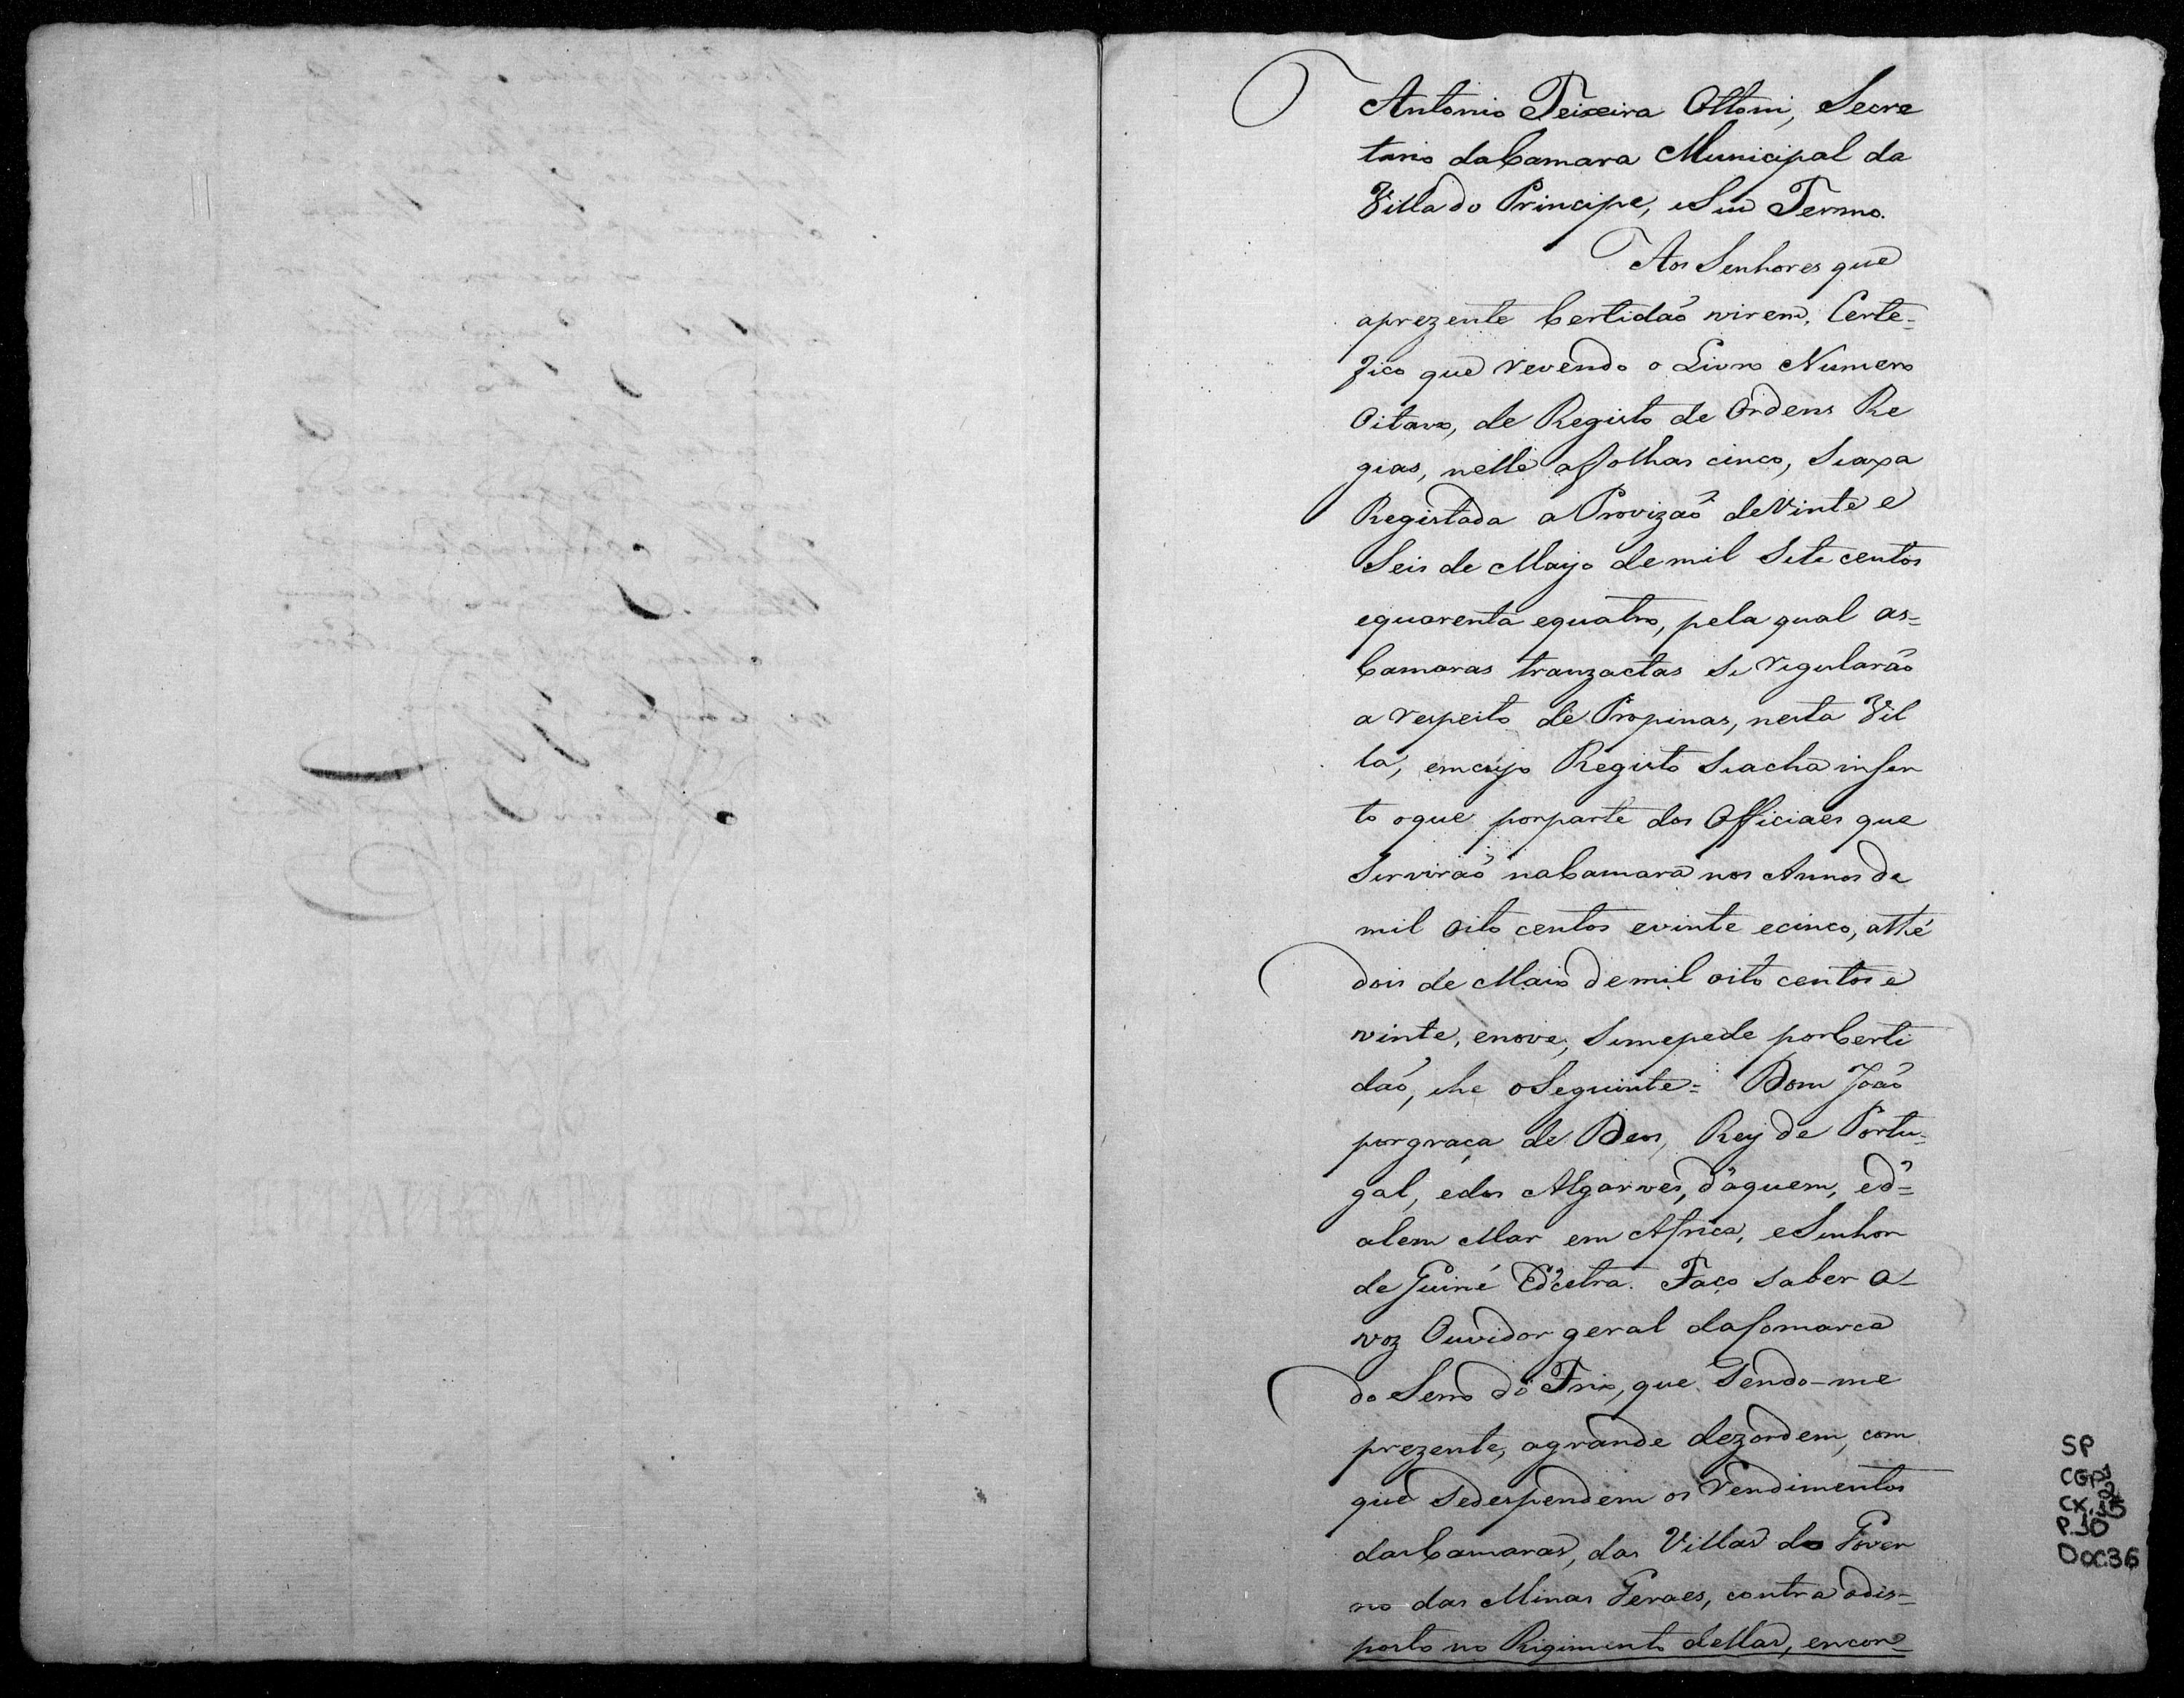 Antonio Teixeira Ottoni, Secre
tario da Camara Municipal da
Villa do Principe, e Seu Termo.
Aos Senhores que
aprezente Certidaõ virem, Certe=
fico que revendo o Livro Numero
Oitavo, de Registo de Ordens Re
gias, nelle a folhas cinco, Seaxa
Registada a Provizaõ de Vinte e
Seis de Mayo de mil Sete centos
equarenta equatro, pela qual as=
Camaras tranzactas se regularaõ
a respeito de Propinas, nesta Vil
la, emcujo Registo Seacha inser
to oque porparte dos Officiaes que
Serviraõ naCamara nos Annos de
mil oito centos evinte ecinco, athé
dois de Maio de mil oito centos e
vinte, enove, Semepede porCerti
daõ, ehe oSeguinte= Dom Joaõ
porgraça de Deos, Rey de Portu=
gal, edos Algarves, dáquem, ed'=
alem Mar em Africa, eSenhor
de Guiné Edcetra. Faço saber a=
voz Ouvidor geral daComarca
do Serro do Frio, que Sendo-me
prezente, agrande dezordem, com
que Sedespendem os rendimentos
dasCamaras, das Villas do Gover
no das Minas Geraes, contra odis=
posto no Regimento dellas, encon=
SP
CGP1
P.10
DOC36
GIOR MAGNANI